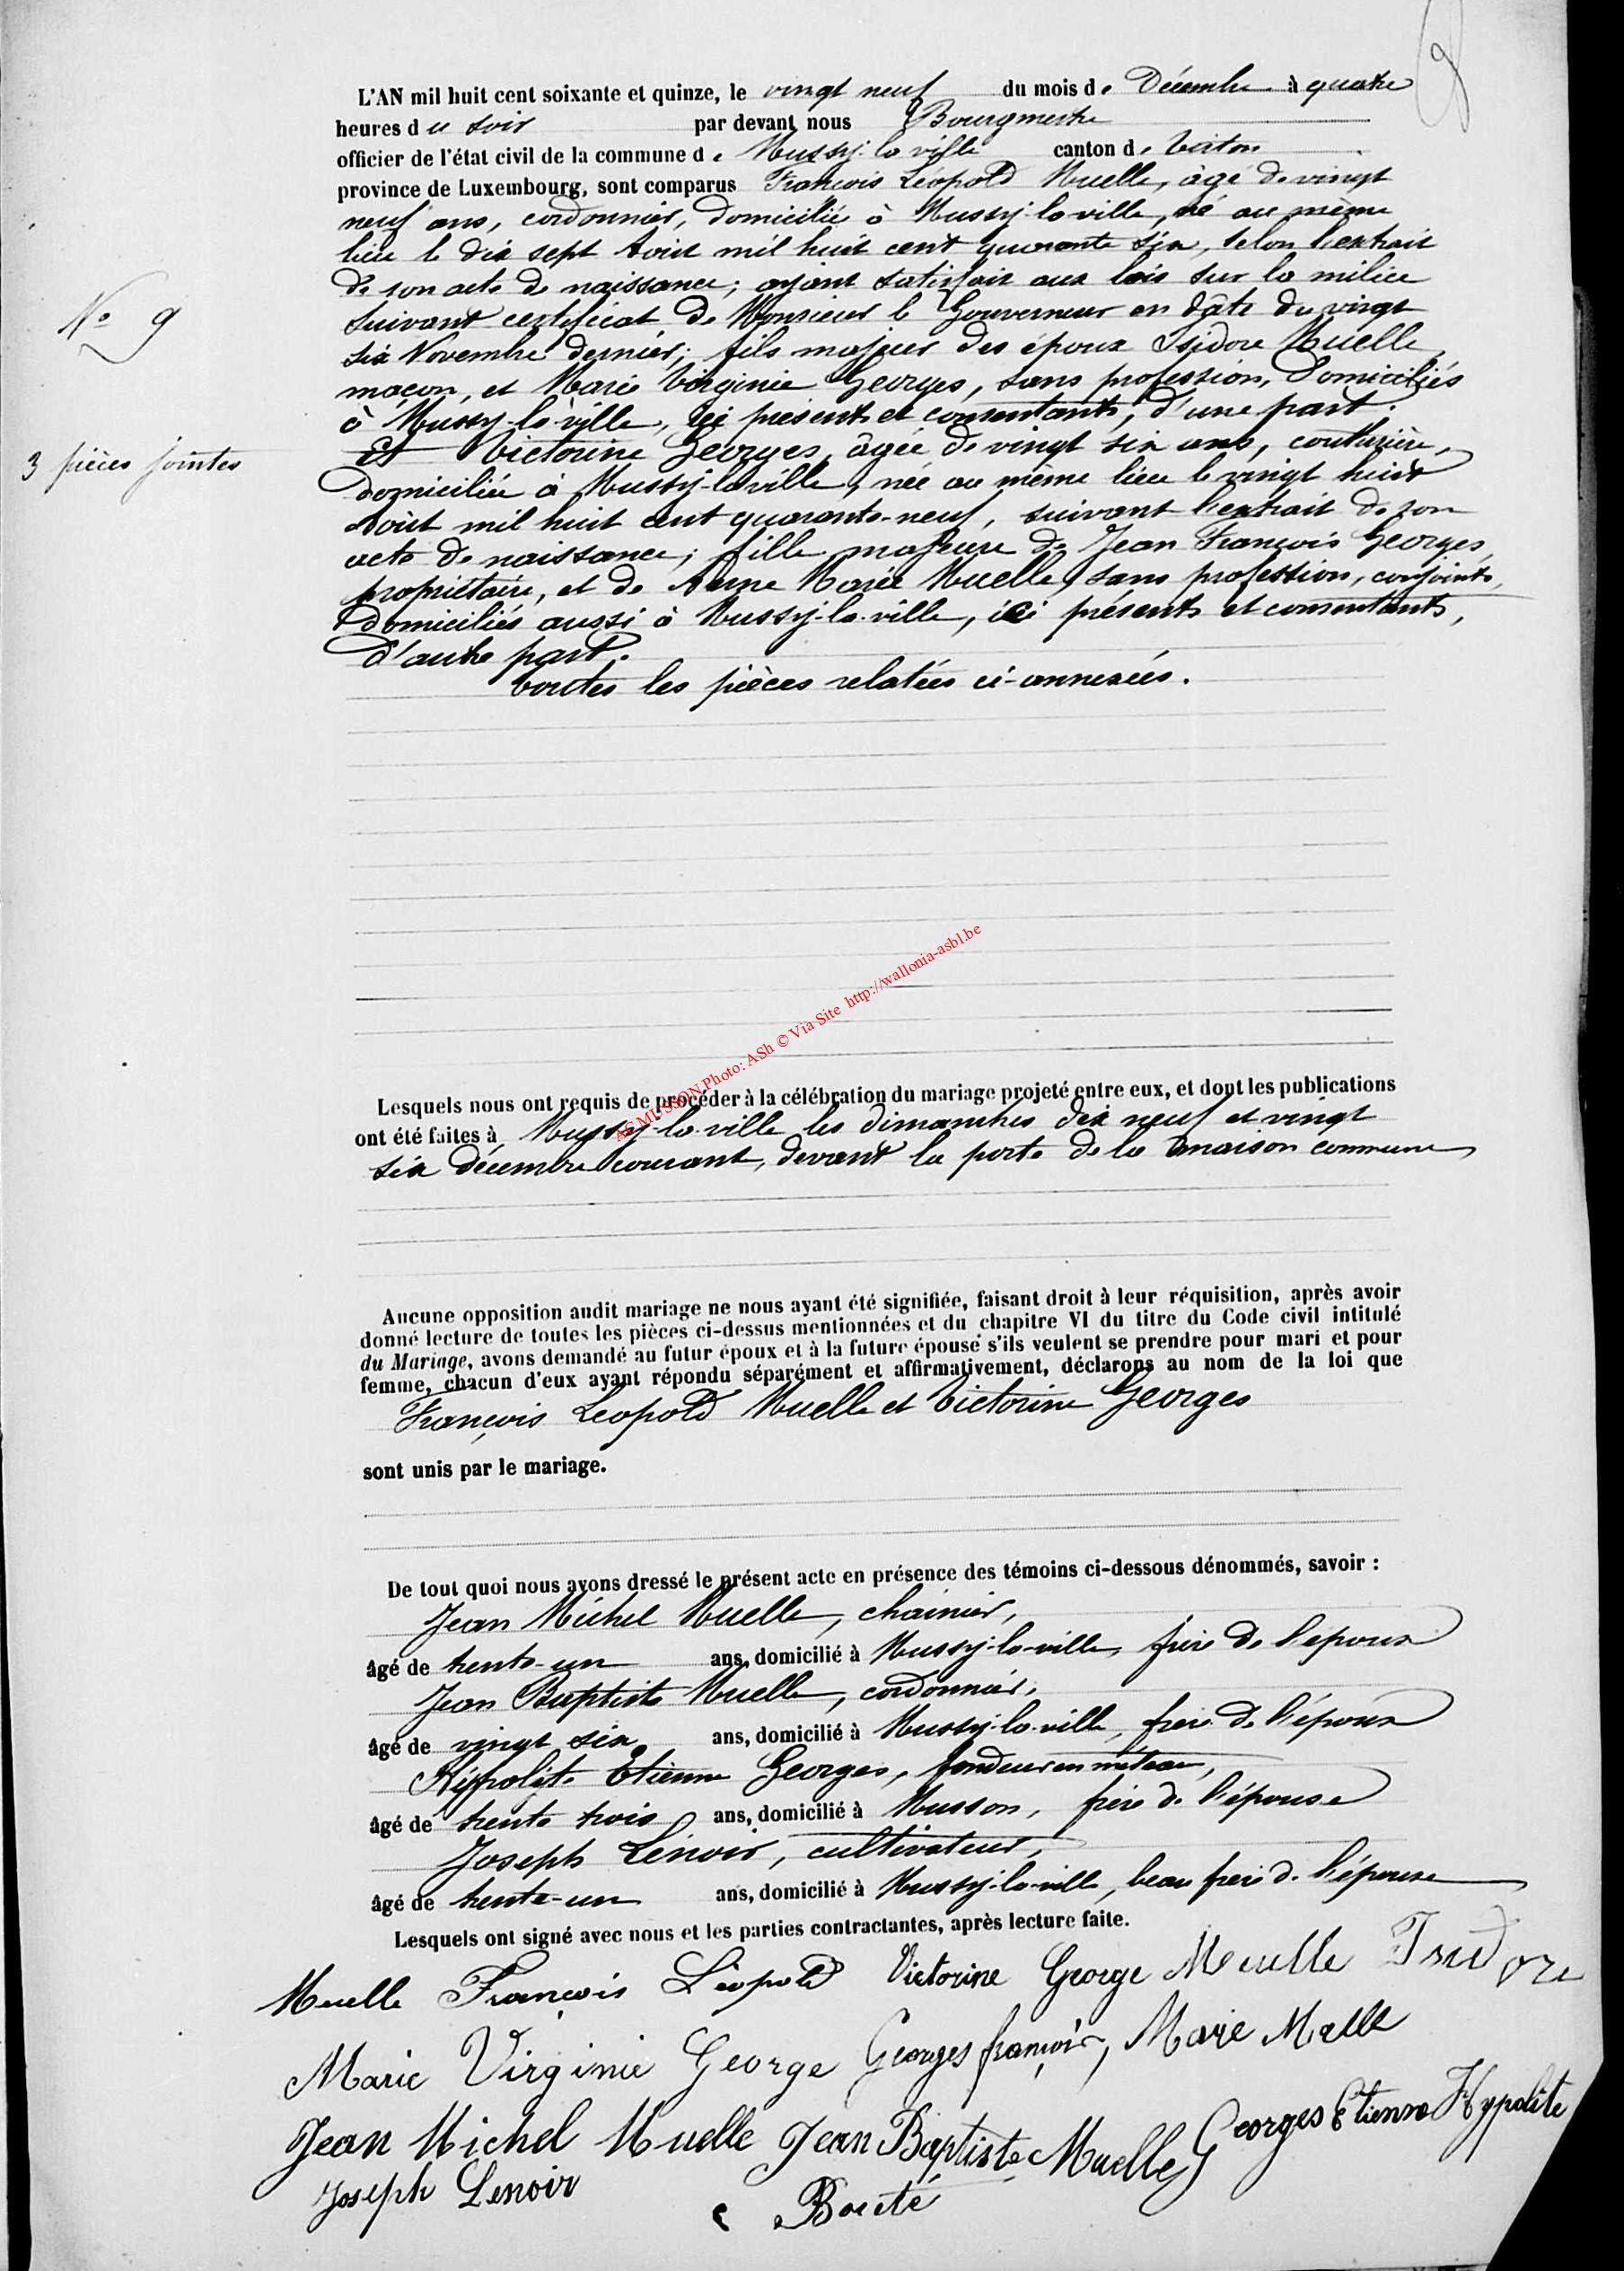 8
L'AN mil huit cent soixante et quinze, le vingt neuf du mois de Décembre à quatre
heures du soir par devant nous Bourgmestre
officier de l'état civil de la commune de Mussy-la-ville canton de Virton
province de Luxembourg, sont comparus François Léopold Muelle, âgé de vingt
neuf ans, cordonnier, domicilié à Mussy-la-ville, né au même
lieu le dix sept Août mil huit cent quarante six, selon l'extrait
de son acte de naissance; ayant satisfait aux lois sur la milice
suivant certificat de Monsieur le Gouverneur en date du vingt
six Novembre dernier; fils majeur des époux Isidore Muelle,
maçon, et Marie Virginie Georges, sans profession, domiciliés
à Mussy-la-ville, ici présents et consentants, d'une part.
Et Victorine Georges, âgée de vingt six ans, couturière,
domiciliée à Mussy-la-ville, née au même lieu le vingt huit
Août mil huit cent quarante-neuf, suivant l'extrait de son
acte de naissance; fille majeure de Jean François Georges,
propriétaire, et de Anne Marie Muelle, sans profession, conjoints,
domiciliés aussi à Mussy-la-ville, ici présents et consentants,
d'autre part.
Toutes les pièces relatées ci-annexées.
No 9
3 pièces jointes
AE MUSSON Photo: ASh © Via Site http://wallonia-asbl.be
Lesquels nous ont requis de procéder à la célébration du mariage projeté entre eux, et dont les publications
ont été faites à Mussy-la-ville les dimanches dix neuf et vingt
six décembre courant, devant la porte de la maison commune
Aucune opposition audit mariage ne nous ayant été signifiée, faisant droit à leur réquisition, après avoir
donné lecture de toutes les pièces ci-dessus mentionnées et du chapitre VI du titre du Code civil intitulé
du Mariage, avons demandé au futur époux et à la future épouse s'ils veulent se prendre pour mari et pour
femme, chacun d'eux ayant répondu séparément et affirmativement, déclarons au nom de la loi que
François Léopold Muelle et Victorine Georges
sont unis par le mariage.
De tout quoi nous avons dressé le présent acte en présence des témoins ci-dessous dénommés, savoir :
Jean Michel Muelle, chaînier,
âgé de trente-un ans, domicilié à Mussy-la-ville, frère de l'époux
Jean Baptiste Muelle, cordonnier,
âgé de vingt six ans, domicilié à Mussy-la-ville, frère de l'époux
Hippolyte Etienne Georges, fondeur en métaux,
âgé de trente trois ans, domicilié à Musson, frère de l'épouse
Joseph Lenoir, cultivateur,
âgé de trente-un ans, domicilié à Mussy-la-ville, beau frère de l'épouse
Lesquels ont signé avec nous et les parties contractantes, après lecture faite.
Muelle François Léopold Victorine George Meuelle Isidore
Marie Virginie George Georges françois, Marie Malle
Jean Michel Muelle Jean Baptiste Muelle Georges Etienne Hypolite
Joseph Lenoir Bouté